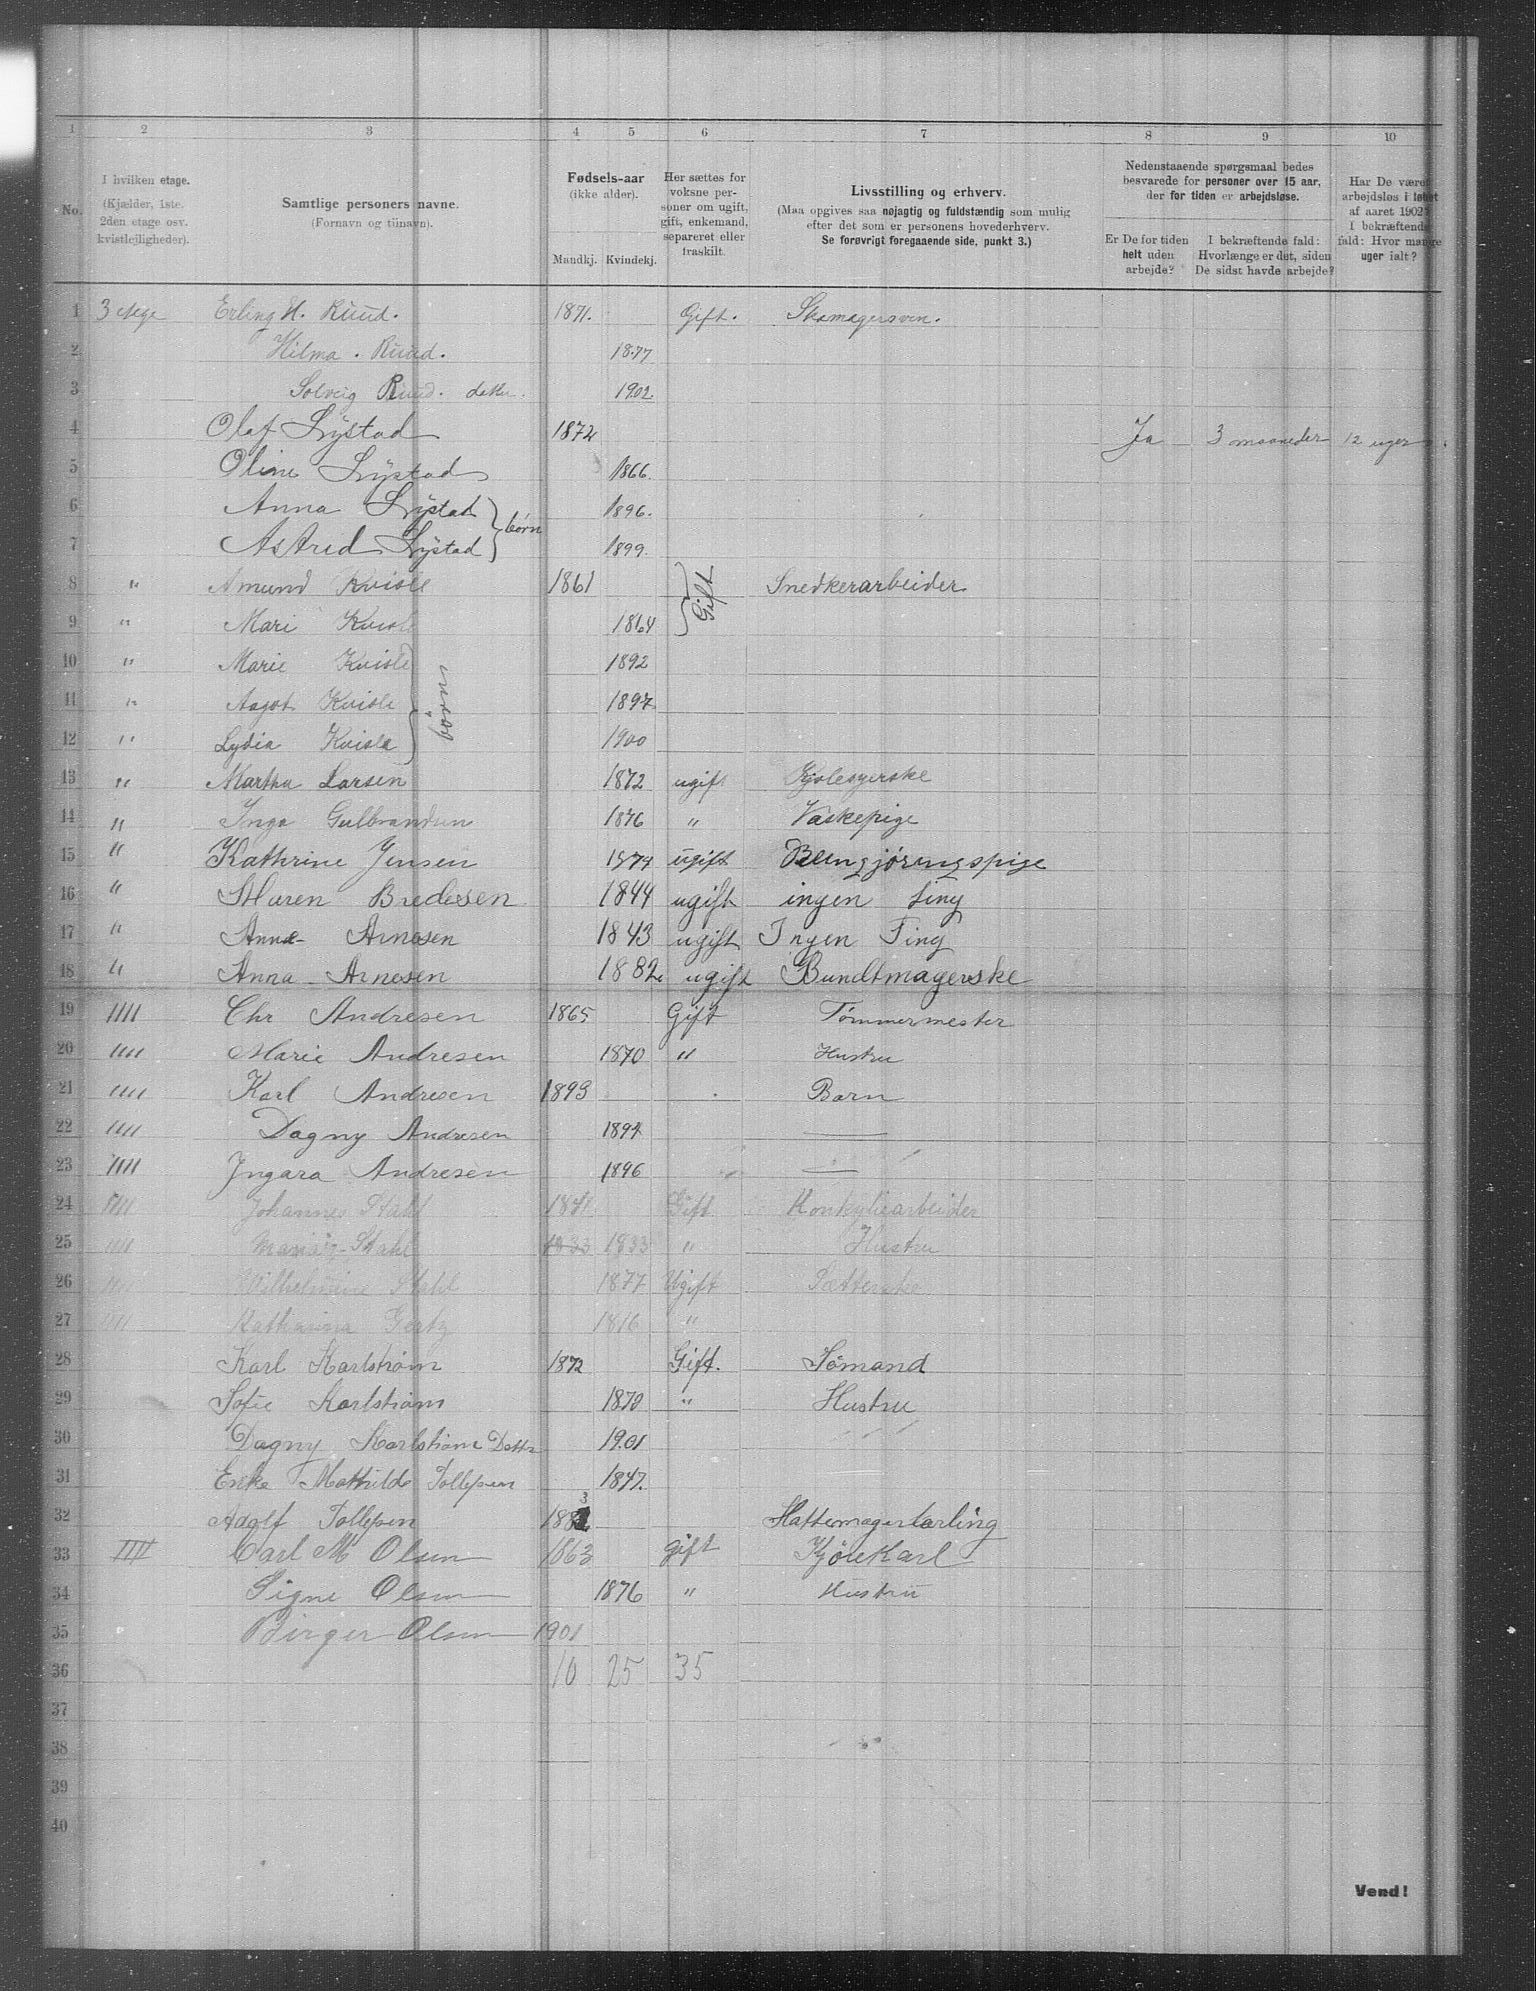 1 2 3 4 5 6 7 8 9 10
No.
I hvilken etage.
(Kjælder, 1ste.
2den etage osv.
kvistlejligheder).
Samtlige personers navne.
(Fornavn og tilnavn).
Fødsels-aar
(ikke alder).
Mandkj. Kvindekj.
Her sættes for
voksne per-
soner om ugift,
gift, enkemand,
separeret eller
fraskilt.
Livsstilling og erhverv.
(Maa opgives saa nøjagtig og fuldstændig som mulig
efter det som er personens hovederhverv.
Se forøvrigt foregaaende side, punkt 3.)
Nedenstaaende spørgsmaal bedes
besvarede for personer over 15 aar,
der for tiden er arbejdsløse.
Er De for tiden
helt uden
arbejde?
I bekræftende fald:
Hvorlænge er det, siden
De sidst havde arbejde?
Har De været
arbejdsløs i løbet
af aaret 1902?
I bekræftende
fald: Hvor mange
uger ialt?
1 3 etage Erling H. Ruud. 1871. Gift. Skomagersven.
2 Hilma. Ruud. 1877
3 Solveig Ruud. 1902
4 Olaf Lystad 1872 Ja 3 maaneder 12 uger
5 Oline Lystad 1866.
6 Anna Lystad 1896.
børn
7 Astrid Lystad 1899.
8 " Amund Kvisle 1861 Gift Snedkerarbeider
9 " Mari Kvisle 1864
10 " Marie Kvisle 1892
børn
11 " Aagot Kvisle 1897
12 " Lydia Kvisle 1900
13 " Martha Larsen 1872 ugift Kjolesyerske
14 " Inga Gulbrandsen 1876 " Vaskepige
15 " Kathrine Jensen 1874 ugift Rengjøringspige
16 " Maren Bredesen 1844 ugift ingen ting
17 " Anne Arnesen 1843 ugift Ingen Ting
18 " Anna Arnesen 1882 ugift Bundtmagerske
19 IIII Chr Andresen 1865 Gift Tømmermester
20 IIII Marie Andresen 1870 " Hustru
21 IIII Karl Andresen 1893 Barn
22 IIII Dagny Andresen 1894 —
23 IIII Ingara Andresen 1896 —
24 IIII Johannes Ståhl 1841 Gift Konkyliearbeider
25 IIII Stahl 1833 1833 " Hustru
26 IIII Wilhelmine Stahl 1877 Ugift Sætterske
27 IIII Katharina Gertz 1816 "
28 Karl Karlstrøm 1872 Gift. Sömand
29 Sofie Karlstrøm 1870 " Hustru
30 Dagny Karlstrøm Dattr 1901
31 Enke Mathilde Tollefsen 1847.
32 Adolf Tollefsen 188 3 Hattemagerlærling
33 IIII Carl M Olsen 1863 gift Kjørekarl
34 Signe Olsen 1876 " Hustru
35 Birger Olsen 1901
36 10 25 35
37
38
39
40
Vend!